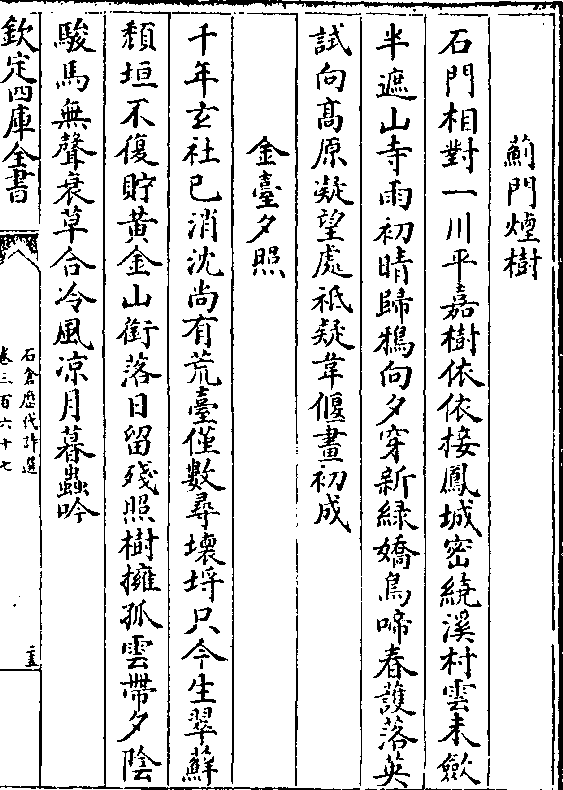 薊門煙樹
石門相對一川平嘉樹依依接鳳城密繞溪村雲未歛
半遮山寺雨初晴歸樵向夕穿新綠嬌鳥啼春護落英
試向高原凝望處祇疑韋偃畫初成
金臺夕照
千年玄社已消沈尚有荒臺僅數尋壞埒只今生翠蘚
頹垣不復貯黃金山銜落日留殘照樹擁孤雲帶夕陰
駿馬無聲衰草合冷風凉月暮蟲吟
欽定四庫全書
石倉歷代詩選
卷三百六十七